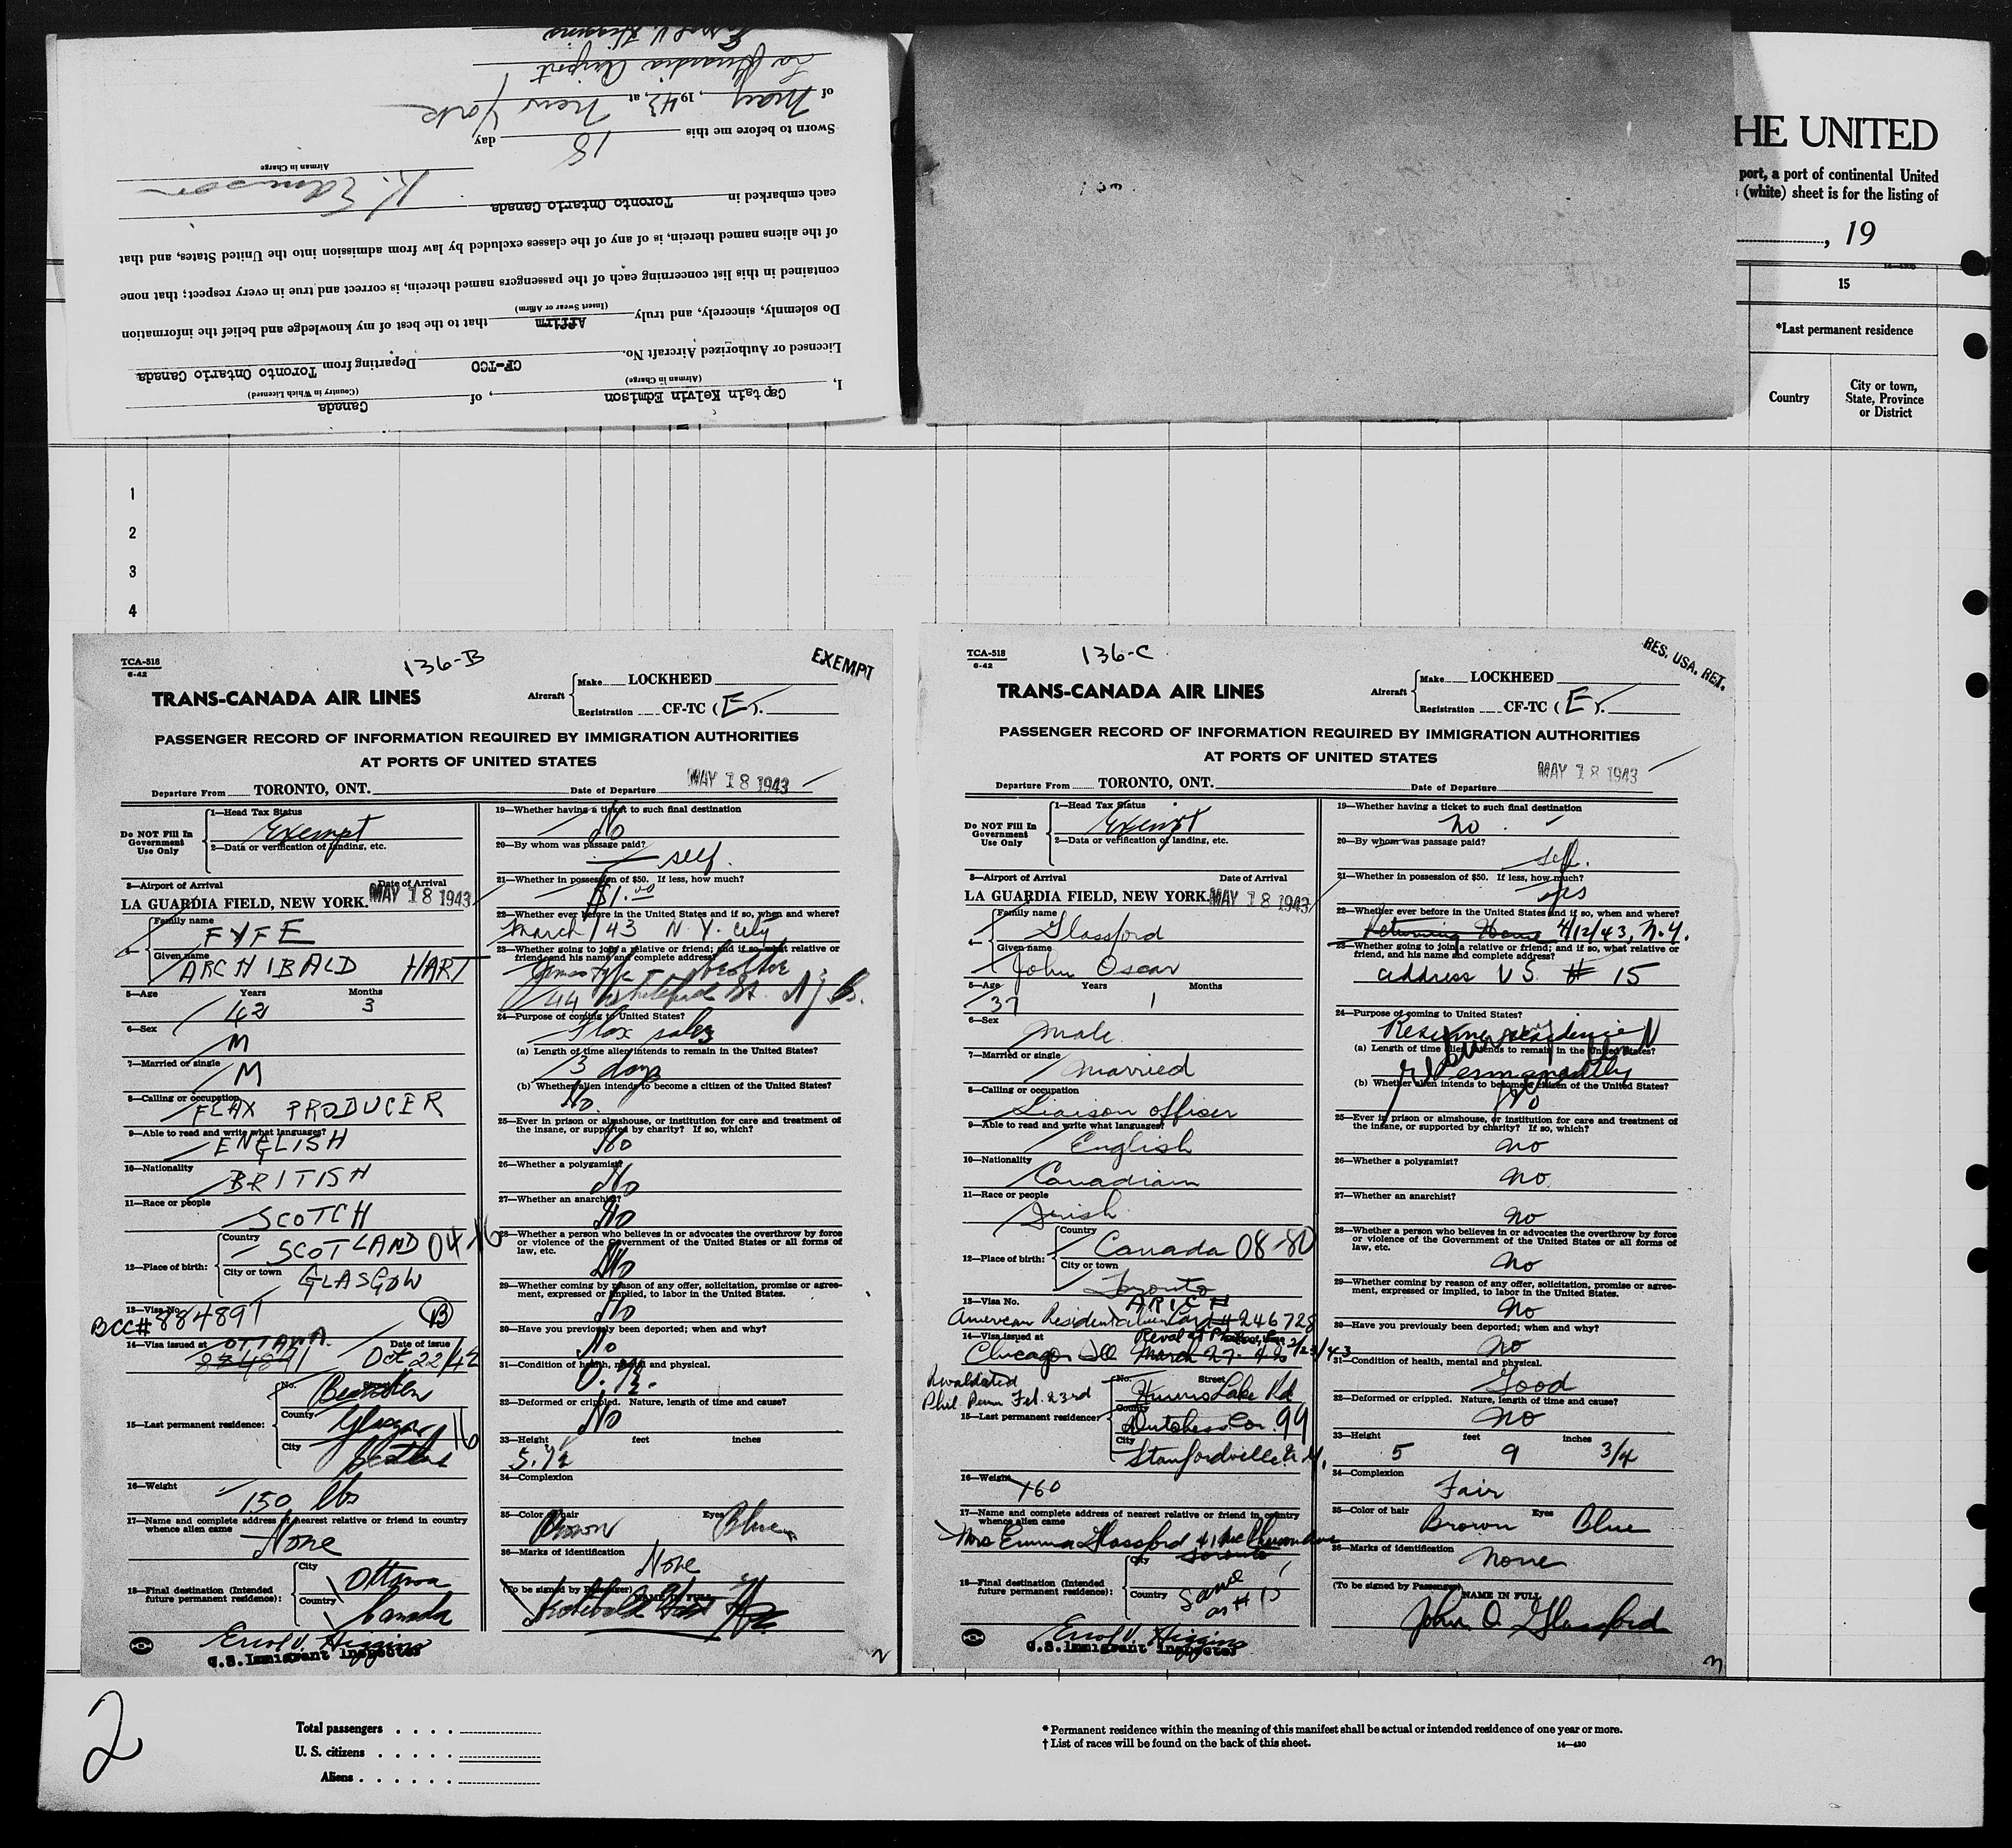 I, Captain Kelvin Edmison, of Canada
(Airman in Charge) (Country in Which Licensed)
Licensed or Authorized Aircraft No. CF-TCO Departing from Toronto Ontario Canada
Do solemnly, sincerely, and truly Affirm that to the best of my knowledge and belief the information
(Insert Swear or Affirm)
contained in this list concerning each of the passengers named therein, is correct and true in every respect; that none
of the aliens named therein, is of any of the classes excluded by law from admission into the United States, and that
each embarked in Toronto Ontario Canada
K. Edmison
Airman in Charge
Sworn to before me this 18 day
of May, 1943, at New York
La Guardia Airport
Errol V. Higgins
HE UNITED
port, a port of continental United
(white) sheet is for the listing of
, 19
15
*Last permanent residence
Country
City or town,
State, Province
or District
1
2
3
4
TCA-518
6-42
136-B
EXEMPT
TRANS-CANADA AIR LINES
Aircraft
Make LOCKHEED
Registration CF-TC (E).
PASSENGER RECORD OF INFORMATION REQUIRED BY IMMIGRATION AUTHORITIES
AT PORTS OF UNITED STATES
Departure From TORONTO, ONT. Date of Departure MAY 18 1943
Do NOT Fill In
Government
Use Only
1—Head Tax Status
Exempt
2—Data or verification of landing, etc.
3—Airport of Arrival Date of Arrival
LA GUARDIA FIELD, NEW YORK. MAY 18 1943
4—
Family name
FYFE
Given name
ARCHIBALD HART
5—Age Years Months
42 3
6—Sex
M
7—Married or single
M
8—Calling or occupation
FLAX PRODUCER
9—Able to read and write what languages?
ENGLISH
10—Nationality
BRITISH
11—Race or people
SCOTCH
12—Place of birth:
Country
SCOTLAND 04-16
City or town
GLASGOW
13—Visa No.
BCC# 884891 B
14—Visa issued at OTTAWA Date of issue
Oct 22/42
15—Last permanent residence:
No. Street
County
Glasgow 16
City
16—Weight
150 lbs
17—Name and complete address of nearest relative or friend in country
whence alien came
None
18—Final destination (Intended
future permanent residence):
City
Ottawa
Country
Canada
Errol V. Higgins
U.S. Immigrant Inspector
19—Whether having a ticket to such final destination
No
20—By whom was passage paid?
self.
21—Whether in possession of $50. If less, how much?
$1.00
22—Whether ever before in the United States and if so, when and where?
March/43 N.Y. City
23—Whether going to join a relative or friend; and if so, what relative or
friend and his name and complete address?
44
24—Purpose of coming to United States?
Flax sales
(a) Length of time alien intends to remain in the United States?
3 days
(b) Whether alien intends to become a citizen of the United States?
No.
25—Ever in prison or almshouse, or institution for care and treatment of
the insane, or supported by charity? If so, which?
No
26—Whether a polygamist?
No
27—Whether an anarchist?
No
28—Whether a person who believes in or advocates the overthrow by force
or violence of the Government of the United States or all forms of
law, etc.
No
29—Whether coming by reason of any offer, solicitation, promise or agree-
ment, expressed or implied, to labor in the United States.
No
30—Have you previously been deported; when and why?
No
31—Condition of health, mental and physical.
O.K.
32—Deformed or crippled. Nature, length of time and cause?
No
33—Height feet inches
5.7½
34—Complexion
35—Color of hair Eyes
Brown Blue
36—Marks of identification
None
(To be signed by Passenger) NAME IN FULL
Archibald Hart Fyfe
2
TCA-518
6-42
136-C
RES. USA. RET.
TRANS-CANADA AIR LINES
Aircraft
Make LOCKHEED
Registration CF-TC (E).
PASSENGER RECORD OF INFORMATION REQUIRED BY IMMIGRATION AUTHORITIES
AT PORTS OF UNITED STATES
Departure From TORONTO, ONT. Date of Departure MAY 18 1943
Do NOT Fill In
Government
Use Only
1—Head Tax Status
Exempt
2—Data or verification of landing, etc.
3—Airport of Arrival Date of Arrival
LA GUARDIA FIELD, NEW YORK. MAY 18 1943
4—
Family name
Glassford
Given name
John Oscar
5—Age Years Months
37 1
6—Sex
Male
7—Married or single
Married
8—Calling or occupation
Liaison officer
9—Able to read and write what languages?
English
10—Nationality
Canadian
11—Race or people
Irish
12—Place of birth:
Country
Canada 08-80
City or town
Toronto
13—Visa No. ARIC #
American Resident Alien Card # 246728
14—Visa issued at
Chicago Ill March 27 2/23/43
Revalidated
Phil. Penn Feb. 23rd
15—Last permanent residence:
No. Street
Hunns Lake Rd
County
Dutchess Co. 99
City
Stanfordville N.Y.
16—Weight
160
17—Name and complete address of nearest relative or friend in country
whence alien came
Mrs Emma Glassford
Toronto
18—Final destination (Intended
future permanent residence):
City
Country
Same
as # 15
Errol V. Higgins
U.S. Immigrant Inspector
19—Whether having a ticket to such final destination
no.
20—By whom was passage paid?
Self.
21—Whether in possession of $50. If less, how much?
yes
22—Whether ever before in the United States and if so, when and where?
Returning Home 4/12/43, N.Y.
23—Whether going to join a relative or friend; and if so, what relative or
friend, and his name and complete address?
address U S. # 15
24—Purpose of coming to United States?
Resume residence
(a) Length of time alien intends to remain in the United States?
Permanently
(b) Whether alien intends to become a citizen of the United States?
No
25—Ever in prison or almshouse, or institution for care and treatment of
the insane, or supported by charity? If so, which?
no
26—Whether a polygamist?
no.
27—Whether an anarchist?
no
28—Whether a person who believes in or advocates the overthrow by force
or violence of the Government of the United States or all forms of
law, etc.
no
29—Whether coming by reason of any offer, solicitation, promise or agree-
ment, expressed or implied, to labor in the United States.
no
30—Have you previously been deported; when and why?
no
31—Condition of health, mental and physical.
Good
32—Deformed or crippled. Nature, length of time and cause?
no
33—Height feet inches
5 9 3/4
34—Complexion
Fair
35—Color of hair Eyes
Brown Blue
36—Marks of identification
none
(To be signed by Passenger) NAME IN FULL
John O Glassford
3
2
Total passengers . . . .
U. S. citizens . . . . .
Aliens . . . . . .
* Permanent residence within the meaning of this manifest shall be actual or intended residence of one year or more.
† List of races will be found on the back of this sheet.
14—430